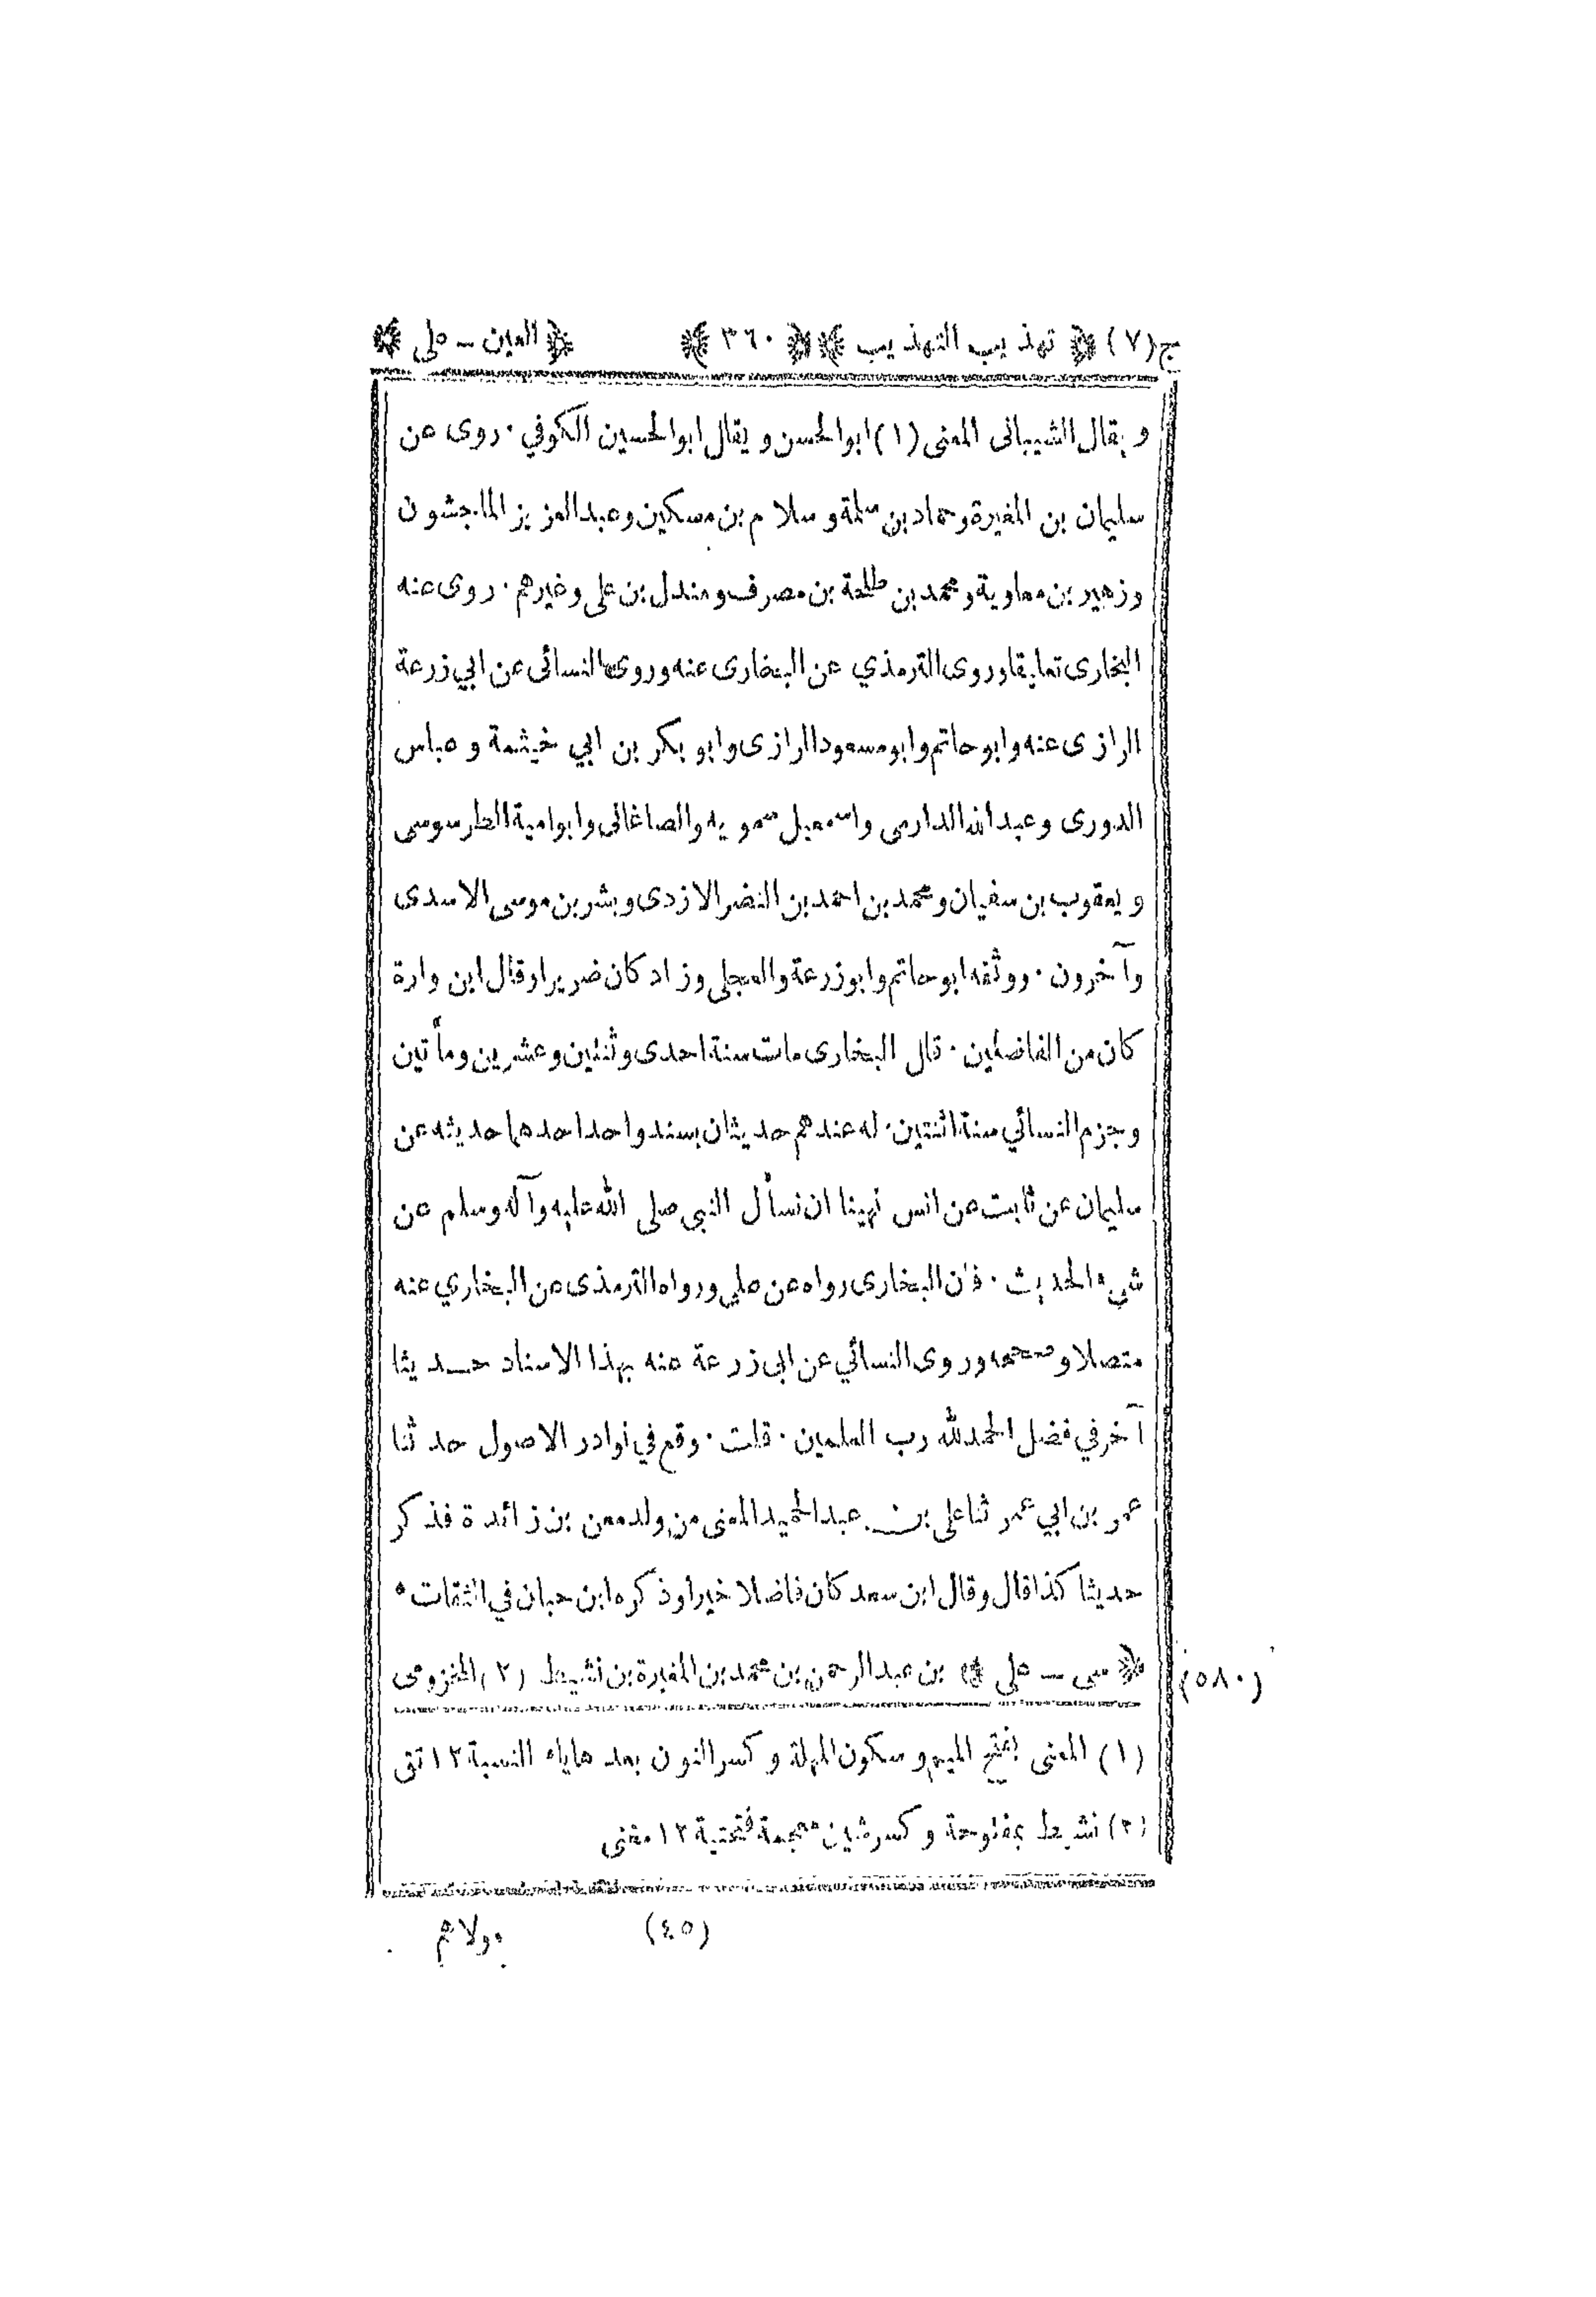 ج(٧) ﴿ تهذيب التهذيب ﴾ ﴿ ٣٦٠ ﴾ ﴿ العين ـ على ﴾
ويقال الشيبانى المعنى (١) ابوالحسن ويقال ابوالحسين الكوفي ٠ روى عن
سليمان بن المغيرة وحماد بن سلمة وسلام بن مسكين وعبدالعزيز الماجشون
وزهير بن معاوية ومحمد بن طلحة بن مصرف ومندل بن على وغيرهم ٠ روى عنه
البخارى تعليقا وروى الترمذي عن البخارى عنه وروى النسائى عن ابي زرعة
الرازى عنه وابوحاتم وابومسعود الرازى وابو بكر بن ابي خيثمة و عباس
الدورى وعبدالله الدارمى واسمعيل سمويه والصاغانى وابوامية الطرسوسى
ويعقوب بن سفيان ومحمد بن احمد بن النضر الازدى وبشر بن موسى الاسدى
وآخرون ٠ ووثقه ابوحاتم وابوزرعة والعجلى وزاد كان ضريرا وقال ابن وارة
كان من الفاضلين ٠ قال البخارى مات سنة احدى وثنتين وعشرين ومأتين
وجزم النسائي سنة اثنتين ٠ له عندهم حديثان بسند واحد احدهما حديثه عن
سليمان عن ثابت عن انس نهينا ان نسأل النبى صلى الله عليه وآله وسلم عن
شيء الحديث ٠ فان البخارى رواه عن علي ورواه الترمذى عن البخاري عنه
متصلا وصححه وروى النسائي عن ابى زرعة عنه بهذا الاسناد حديثا
آخر في فضل الحمدلله رب العلمين ٠ قلت ٠ وقع في نوادر الاصول حدثنا
عمر بن ابي عمر ثنا على بن عبدالحميد المعنى من ولد معن بن زائدة فذكر
حديثا كذا قال وقال ابن سعد كان فاضلا خيرا وذكره ابن حبان في الثقات ٠
(٥٨٠) ﴿ سى ـ على ﴾ بن عبدالرحمن بن محمد بن المغيرة بن نشيط (٢) المخزومى
(١) المعنى بفتح الميم وسكون المهملة و كسر النون بعدها ياء النسبة ١٢ تق
(٢) نشيط بمفتوحة و كسر شين معجمة فتحتية ١٢ مغنى
(٤٥) مولاهم